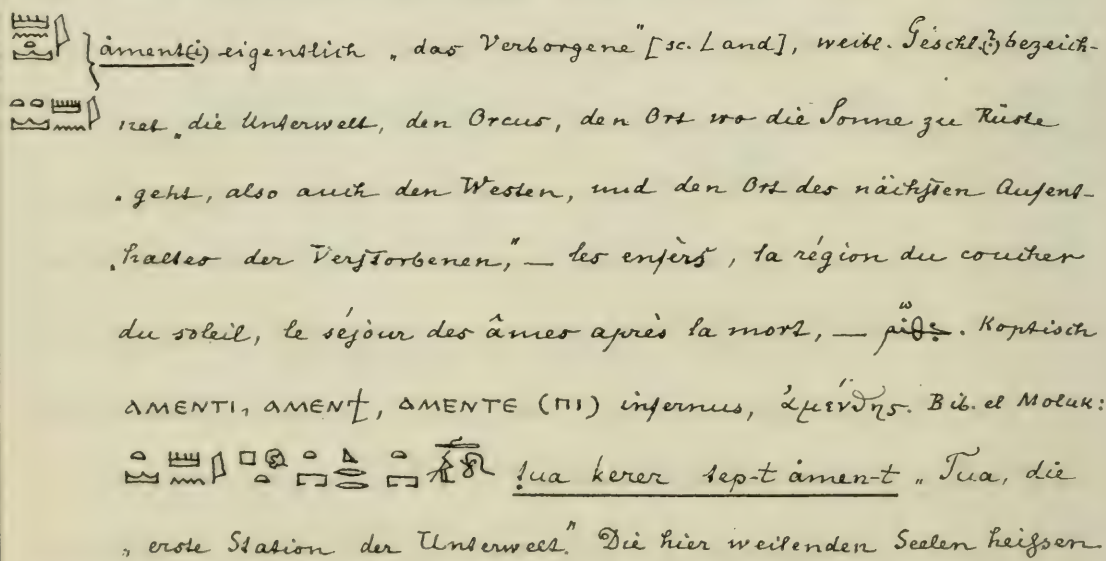 ȧment(i) eigentlich „das Verborgene" [sc. Land], weibl. Geschl. (?) bezeich-
net „die Unterwelt, den Orcus, den Ort wo die Sonne zu Rüste
„geht, also auch den Westen, und den Ort des nächsten Aufent-
„haltes der Verstorbenen," — les enfèrs, la région du coucher
du soleil, le séjour des âmes après la mort, — . Koptisch
ⲀⲘⲈⲚⲦⲒ, ⲀⲘⲈⲚϮ, ⲀⲘⲈⲚⲦⲈ (ⲠⲒ) infernus, ἀμένθης. Bib. el Moluk:
ṭua kerer sep-t ȧmen-t „Tua, die
„erste Station der Unterwelt." Die hier weilenden Seelen heißen